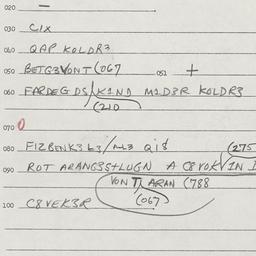 020 —
030 CIX
040 QAP KOLDR3
050 BETG3VONT (067 051 +
060 FARDEG DS/KIND M1D3R KOLDR3
(210
070 0
080 FIZBENK3 63/ QI8 (275
090 ROT ARANG3S+LUGN A C8VOK/IN I
VON T ARAN (788
100 C8VEK3R (067)